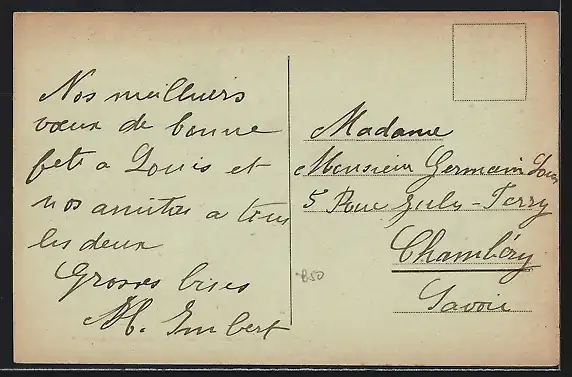 Nos meilleurs
vœux de bonne
fête a Louis et
nos amitiés a tous
les deux
Grosses bises
M. Imbert
Madame
Monsieur Germain Louis
5 Rue July-Ferry
Chambéry
Savoie